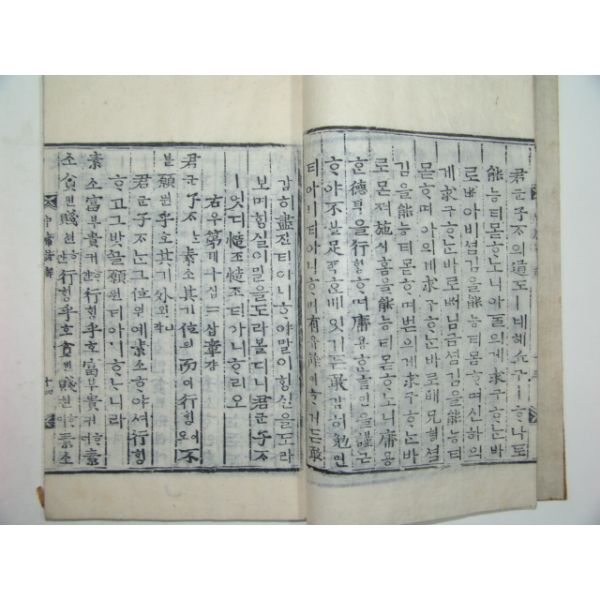 君군子ᄌᆞ의道도ㅣ네헤丘구ㅣᄒᆞ나토
能능티몯ᄒᆞ노니아ᄃᆞᆯ의게求구ᄒᆞᄂᆞᆫ바
로ᄡᅥ아비셤김을能능티몯ᄒᆞ며신하의
게求구ᄒᆞᄂᆞᆫ바로ᄡᅥ님금셤김을能능티
몯ᄒᆞ며아ᄋᆞ의게求구ᄒᆞᄂᆞᆫ바로ᄡᅥ兄형셤
김을能능티몯ᄒᆞ며벋의게求구ᄒᆞᄂᆞᆫ바
로몬져施시홈을能능티몯ᄒᆞ노니庸용
ᄒᆞᆫ德덕을行ᄒᆡᆼᄒᆞ며庸용ᄒᆞᆫ言언을謹근
ᄒᆞ야不블足족ᄒᆞᆫ배잇거든敢감히勉면
티아니티아니ᄒᆞ며有유餘여ᄒᆞ거든敢
감히盡진티아니ᄒᆞ야말이ᄒᆡᆼ실을도라
보며ᄒᆡᆼ실이말을도라볼디니君군子ᄌᆞ
ㅣ엇디慥조慥조티아니ᄒᆞ리오
右우第뎨十십三삼章쟝
君군子ᄌᆞᄂᆞᆫ素소其기位위而이行ᄒᆡᆼ이오不
블願원乎호其기外외니라
君군子ᄌᆞᄂᆞᆫ그位위예素소ᄒᆞ야셔行ᄒᆡᆼ
ᄒᆞ고그밧글願원티아니ᄒᆞᄂᆞ니라
素소富부貴귀ᄒᆞ얀行ᄒᆡᆼ乎호富부貴귀ᄒᆞ며素
소貧빈賤쳔ᄒᆞ얀行ᄒᆡᆼ乎호貧빈賤쳔ᄒᆞ며素소
中庸諺解 十四